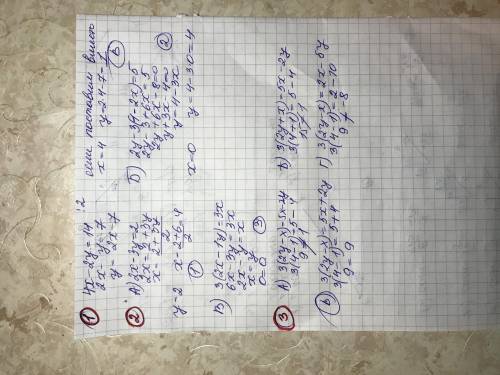 1 4x-2y=14 |:2
2x-y=7
y=2x-7
если
x=4 y=2·4-7=1
В
2 А)
2x=2+3y
x=2+3y/2
y=2 x=2+6/2=4
1
Б) 2y-3(1-2x)=5
2y-3+6x=5
2y+6x-8=0
y+3x-4=0
y=4-3x
x=0 y=4-3·0=4
2
В) 3(2x-1y)=3x
6x-3y=3x
x=y
0=0
3
3 А) 3(2y-x)=5x-2y
3(4-1)=5-4
9≠1
Б) 3(2y+x)=5x-2y
3(4+1)=5-4
15≠1
В) 3(2y-x)=5x+2y
3(4-1)=5+4
9=9
Г) 3(2y-x)=2x-5y
3(4-1)=2-10
9≠-8